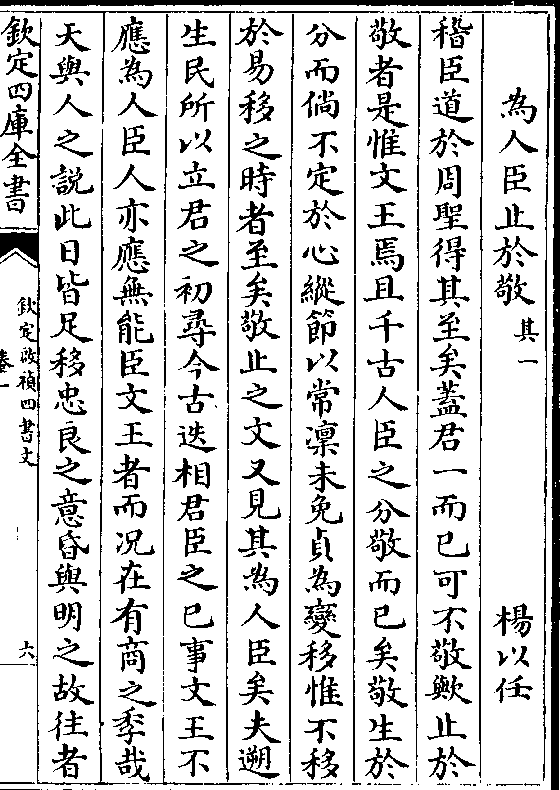 為人臣止於敬 其一 楊以任
稽臣道於周聖得其至矣蓋君一而已可不敬歟止於
敬者是惟文王焉且千古人臣之分敬而已矣敬生於
分而倘不定於心縱節以常凜未免貞為變移惟不移
於易移之時者至矣敬止之文又見其為人臣矣夫遡
生民所以立君之初尋今古迭相君臣之已事文王不
應為人臣人亦應無能臣文王者而况在有商之季哉
天與人之說此日皆足移忠良之意昏與明之故往者
欽定四庫全書
欽定啟禎四書文
卷一
六